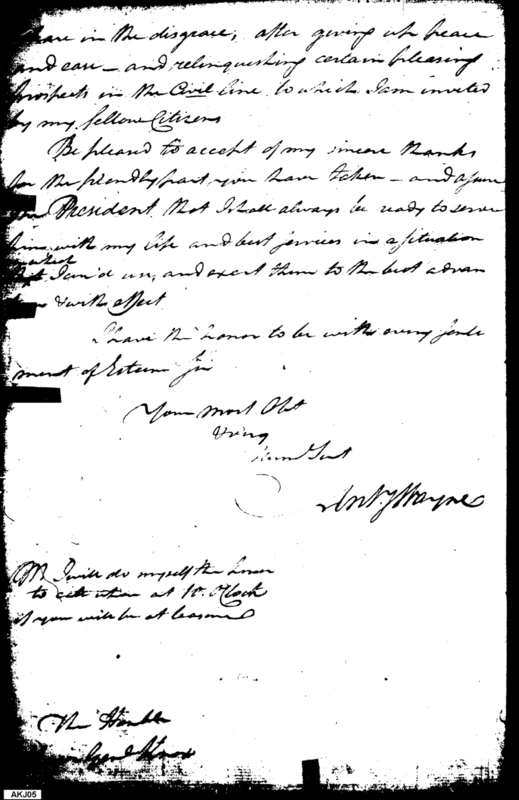 share in the disgrace, after giving up peace
and ease — and relinquishing certain pleasing
prospects in the Civil line to which I am invited
by my fellow Citizens
Be pleased to accept of my sincere thanks
for the friendly part you have taken — and assure
the President, that I shall always be ready to serve
him with my life and best services in a situation
in which
I can'd use, and exert them to the best advan
& with effect
I have the honor to be with every senti
ment of Esteem Sir
Your most Obt
& very
Hum Sert
Anty Wayne
NB I will do myself the honor
to call at 10. OClock
if you will be at leasure
The Honble
Genl Knox
AKJ05